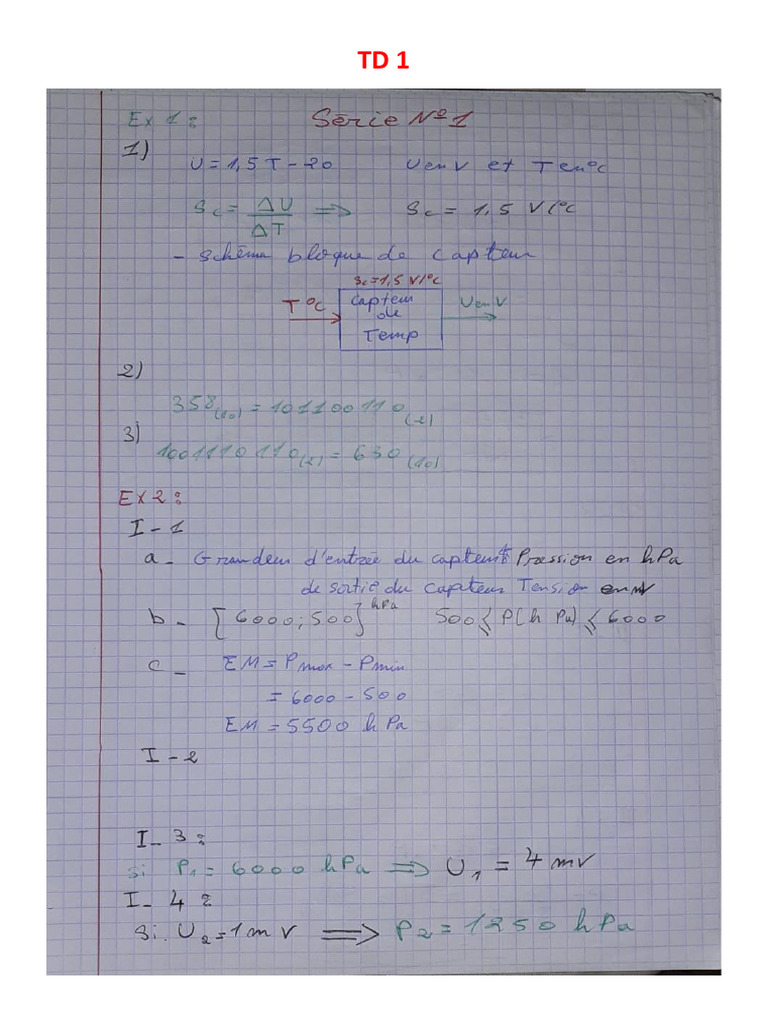 TD 1
Ex 1:
Série N°1
1)
U = 1,5 T - 20 U en V et T en °C
Sc = ΔU/ΔT ⇒ Sc = 1,5 V/°C
- Schéma bloque de capteur
Sc = 1,5 V/°C
T °C
Capteur
de
Temp
U en V
2)
358(10) = 101100110(2)
3)
1001110110(2) = 630(10)
Ex 2:
I - 1
a - Grandeur d'entrée du capteur Pression en hPa
de sortie du capteur Tension en mV
b - [6000; 500] hPa 500 ⩽ P(h Pa) ⩽ 6000
c - EM = Pmax - Pmin
= 6000 - 500
EM = 5500 h Pa
I - 2
I - 3:
si P1 = 6000 hPa ⇒ U1 = 4 mV
I - 4:
Si. U2 = 1 m V ⇒ P2 = 1250 h Pa